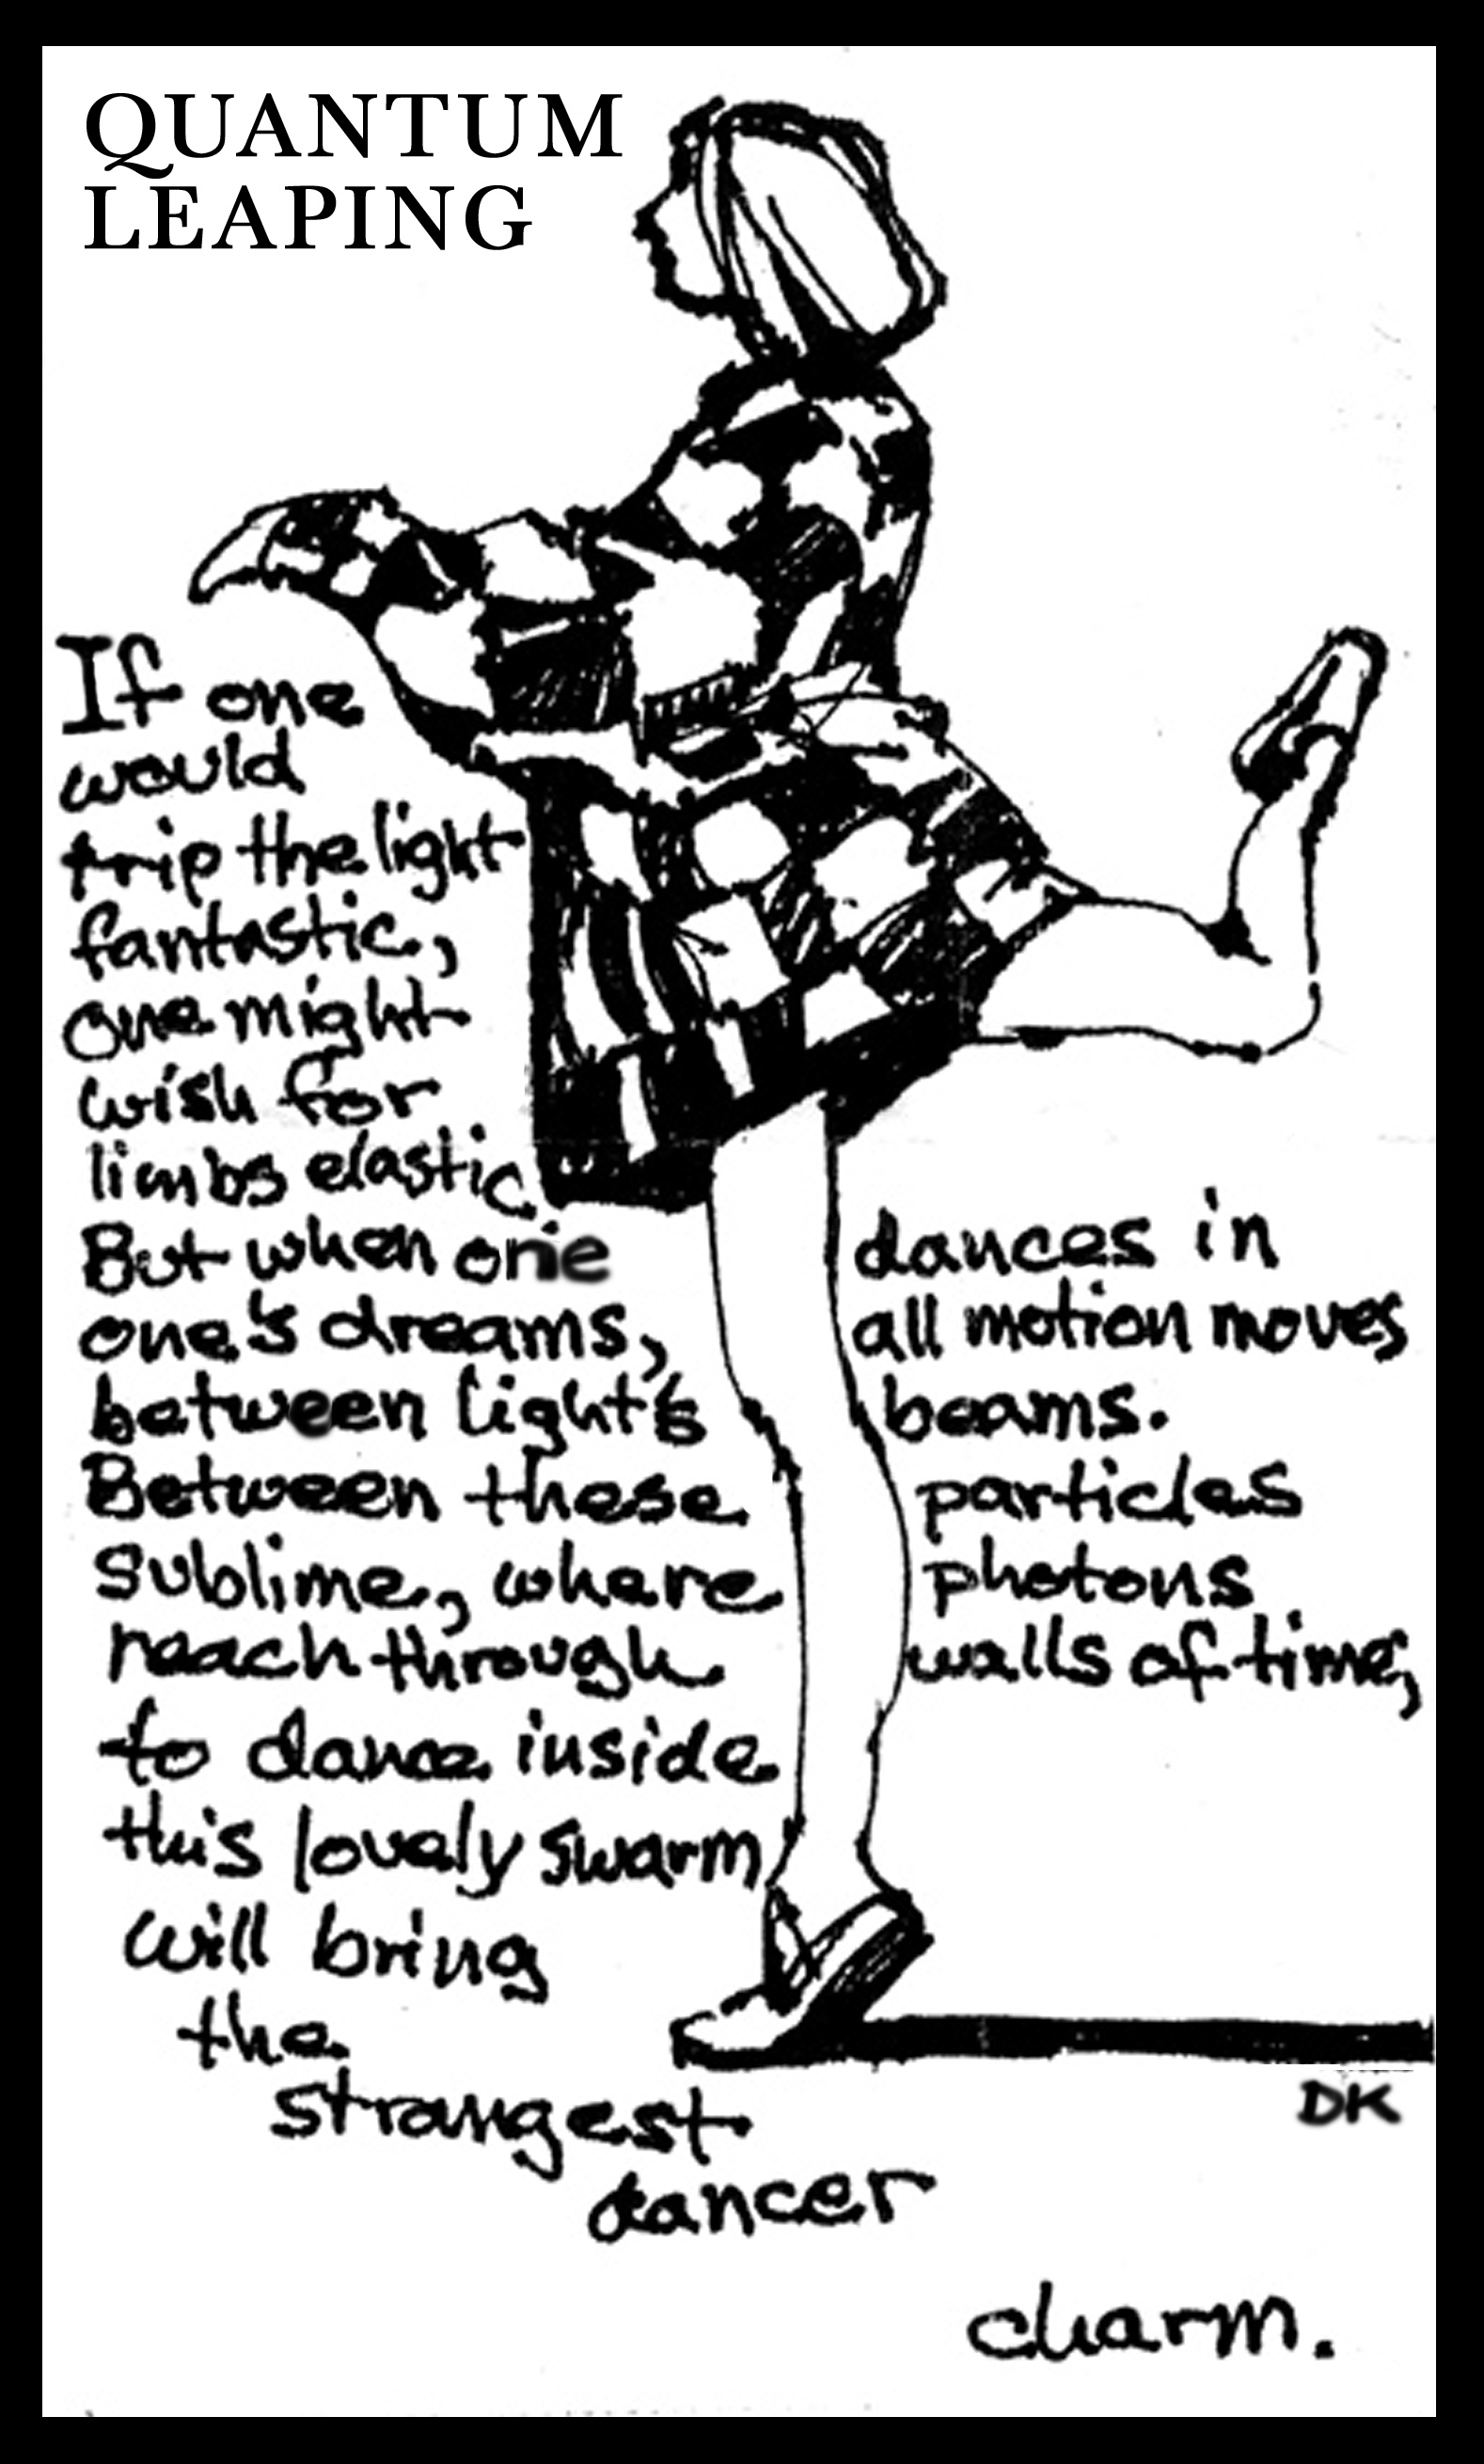 QUANTUM
LEAPING
If one
would
trip the light
fantastic,
one might
wish for
limbs elastic.
But when one dances in
one's dreams, all motion moves
between light's beams.
Between these particles
sublime, where photons
reach through walls of time,
to dance inside
this lovely swarm
will bring
the
strangest
dancer
charm.
DK